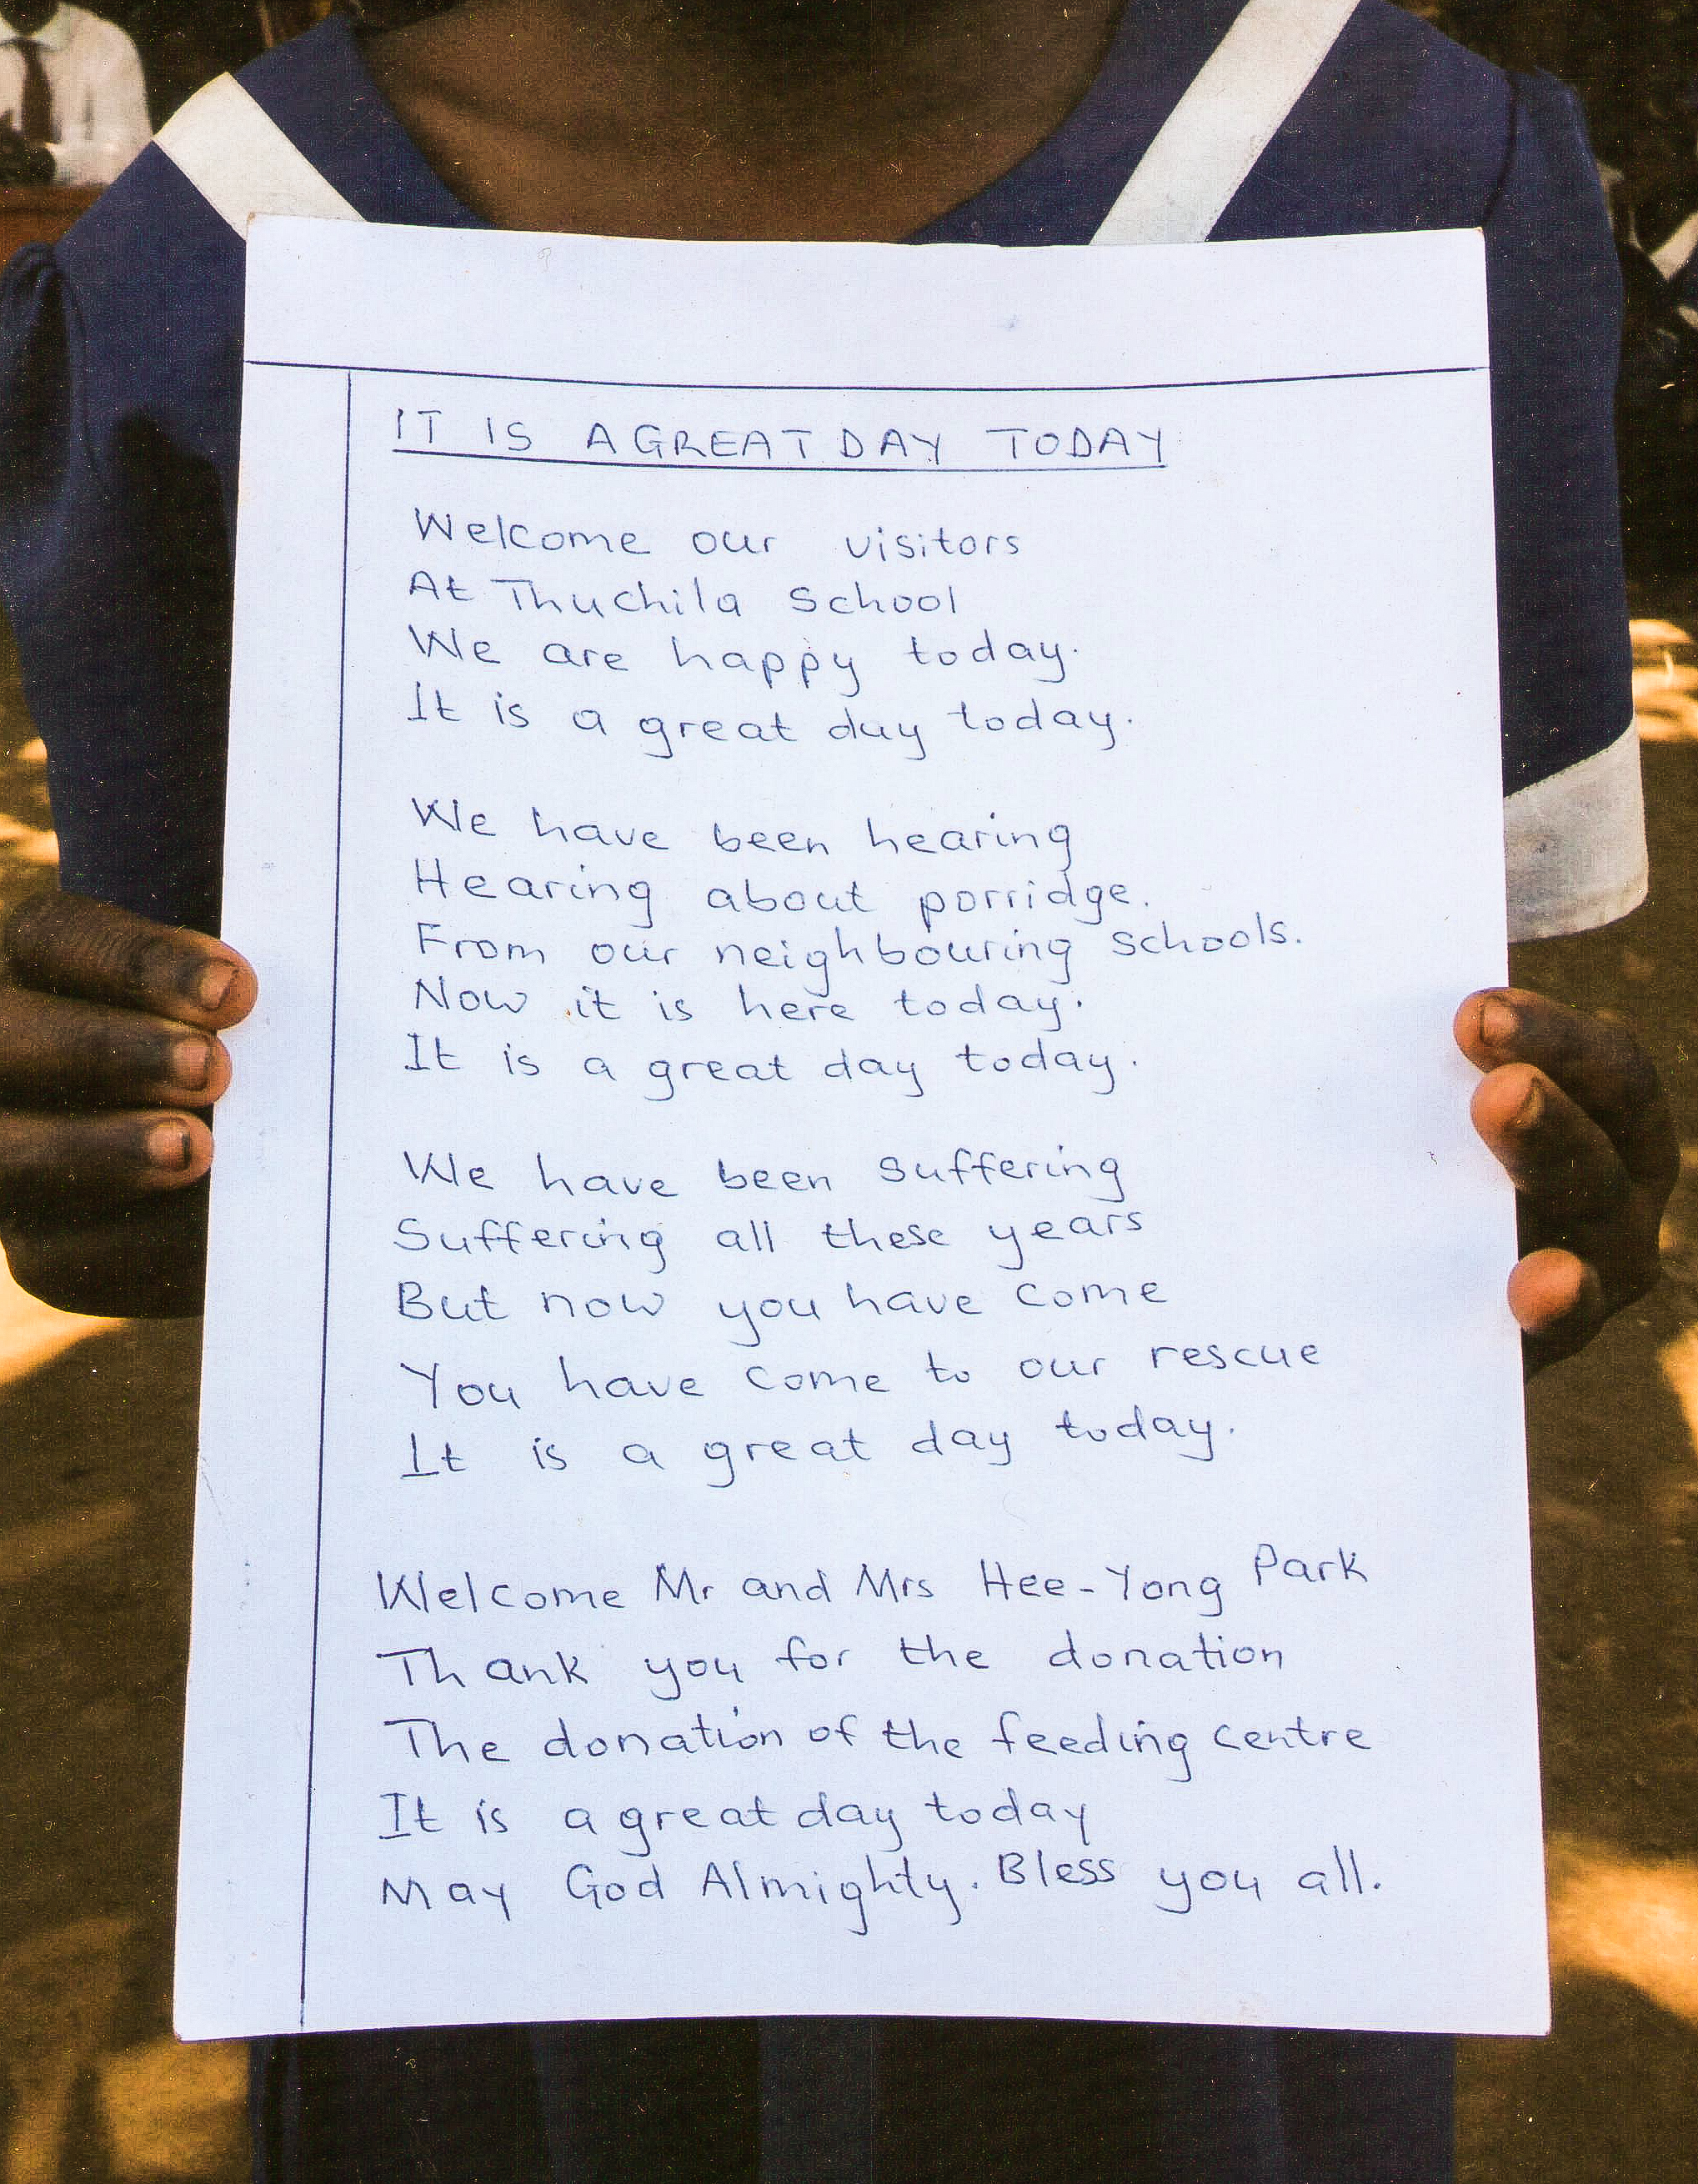 IT IS A GREAT DAY TODAY
Welcome our visitors
At Thuchila School
We are happy today.
It is a great day today.
We have been hearing
Hearing about porridge.
From our neighbouring schools.
Now it is here today.
It is a great day today.
We have been suffering
Suffering all these years
But now you have come
You have come to our rescue
It is a great day today.
Welcome Mr and Mrs Hee-Yong Park
Thank you for the donation
The donation of the feeding centre
It is a great day today
May God Almighty. Bless you all.